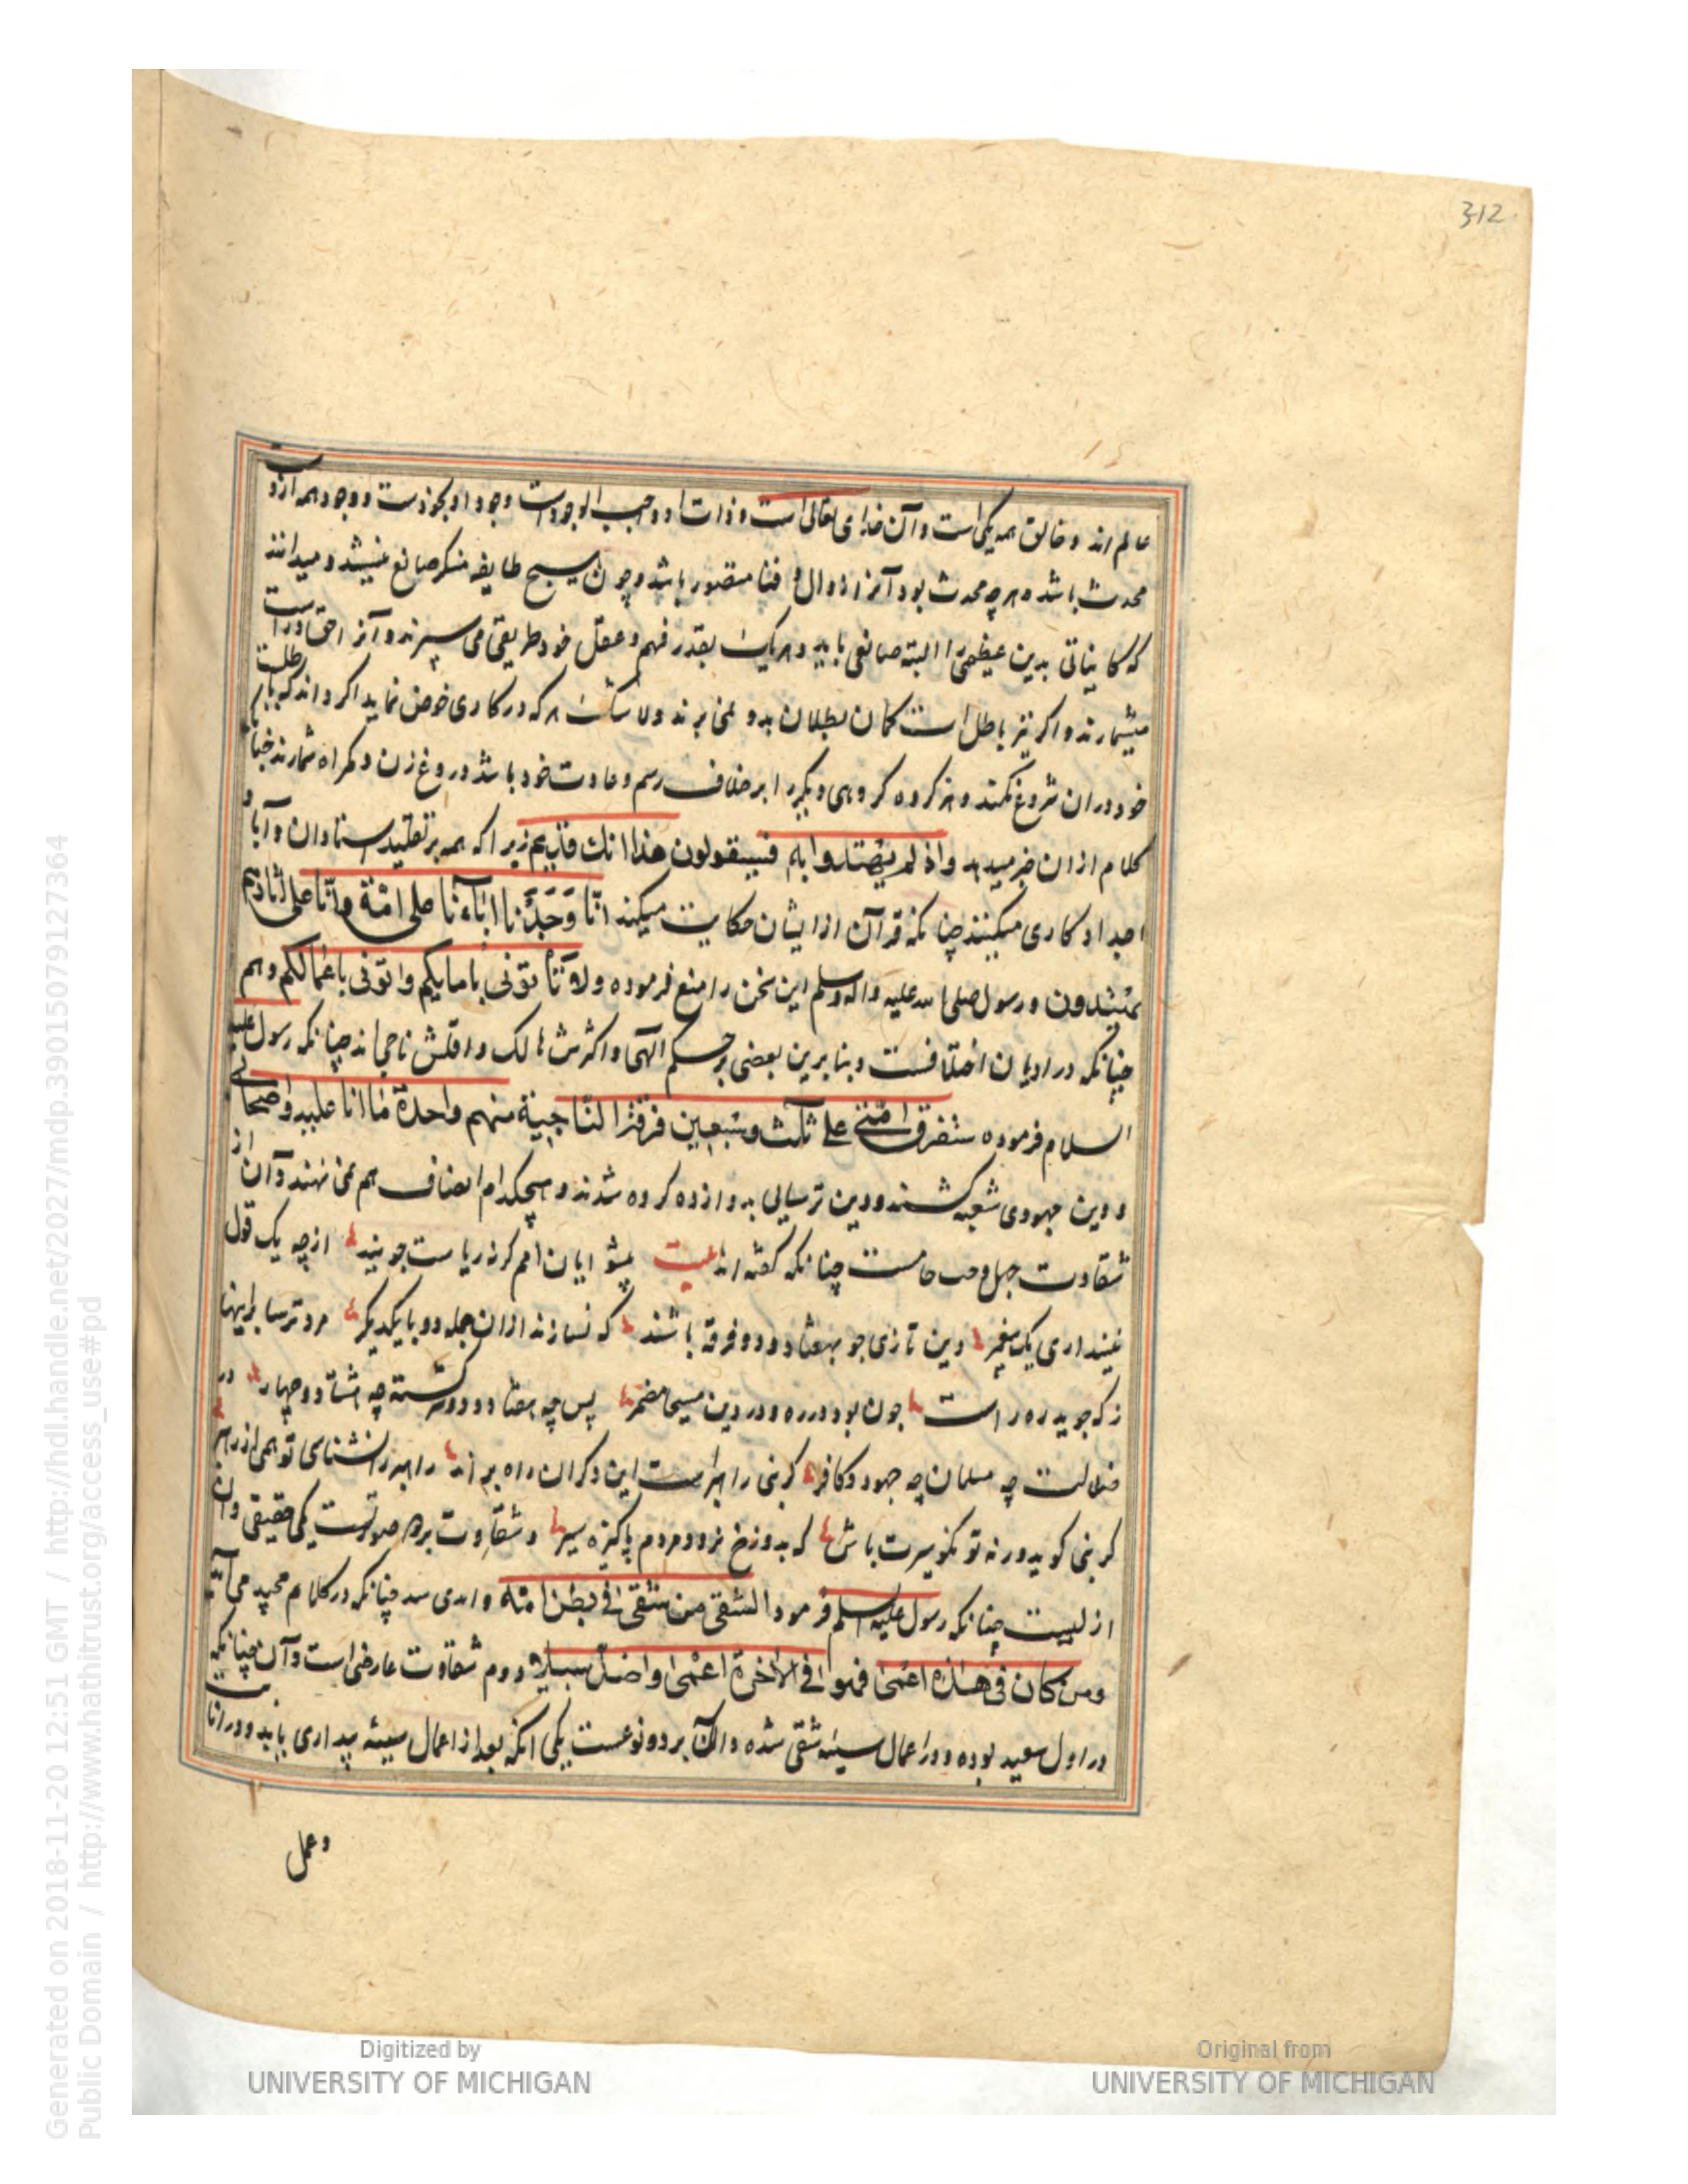 312
عالم اند و خالق همه یکی است و آن خدای تعالی است و ذات او واجب الوجودست وجود او بخودست و وجود همه ازوست
محدث باشد و هر چه محدث بود آنرا زوال و فنا متصور باشد و چون هیچ طایفه منکر صانع نیستند و میدانند
که کایناتی بدین عظیمی را البته صانعی باید و هر یک بقدر فهم و عقل خود طریقی می سپرند و آنرا حق و راست
میشمارند و اگر نیز باطل است گمان بطلان بدو نمی برند ولا شک هر که در کاری خوض نماید اگر داند که باطلست
خود در ان شروع نکند و هر گروه گروهی دیگر را بر خلاف رسم و عادت خود باشد دروغ زن و گمراه شمارند چنانکه
کلام ازان خبر میدهد واذ لم یهتدوا به فسیقولون هذا افک قدیم زیرا که همه بر تقلید استادان و آبا و
اجداد کاری میکنند چنانکه قرآن از ایشان حکایت میکند انا وجدنا اباءنا علی امة وانا علی اثارهم
مهتدون و رسول صلی الله علیه واله وسلم این سخن را منع فرموده ولا تاتونی بانسابکم واتونی باعمالکم و هم
چنانکه در ادیان اختلافست و بنا برین بعضی بر حکم الهی و اکثرش هالک و اقلش ناجی اند چنانکه رسول علیه
السلام فرموده ستفرق امتی علی ثلث وسبعین فرقة الناجیة منهم واحدة ما انا علیه واصحابی
و دین جهودی شعبه گشتند و دین ترسایی بدوازده گروه شدند و هیچکدام انصاف هم نمی نهند و آن از
شقاوت جهل و حب جاهست چنانکه گفته اند بیت پیشوایان امم گرنه ریاست جویند از چه یک قول
نیند اری یک پیغمبر دین تازی چو بهفتاد و دو فرقه باشند که نسازند ازان جمله دو با یکدیگر مرد ترسا براینها
ز که جوید ره راست چون بود در ره و در دین مسیحا مضمر پس چه هفتاد و دو رسته چه هشتاد و چهار در
ضلالت چه مسلمان چه جهود و کافر گر نبی راهبرست این دگران راه برند راهبر را نشناسی تو همی از رهبر
گر نبی گوید ورنه تو نکو سیرت باش که بدوزخ نرود مردم پاکیزه سیر و شقاوت بر دو صورتست یکی حقیقی و آن
ازلیست چنانکه رسول علیه السلم فرمود الشقی من شقی فی بطن امه و ابدی چنانکه در کلام مجید می آید
ومن کان فی هذه اعمی فهو فی الاخرة اعمی واضل سبیلا دوم شقاوت عارضی است و آن چنانکه
در اول سعید بوده و در اعمال سیئه شقی شده و آن بر دو نوعست یکی انکه بعد از اعمال سیئه بیداری یابد و در انابت
و عمل
Generated on 2018-11-20 12:51 GMT / http://hdl.handle.net/2027/mdp.39015079127364
Public Domain / http://www.hathitrust.org/access_use#pd
Digitized by
UNIVERSITY OF MICHIGAN
Original from
UNIVERSITY OF MICHIGAN